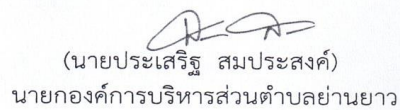 (นายประเสริฐ  สมประสงค์)
นายกองค์การบริหารส่วนตำบลย่านยาว